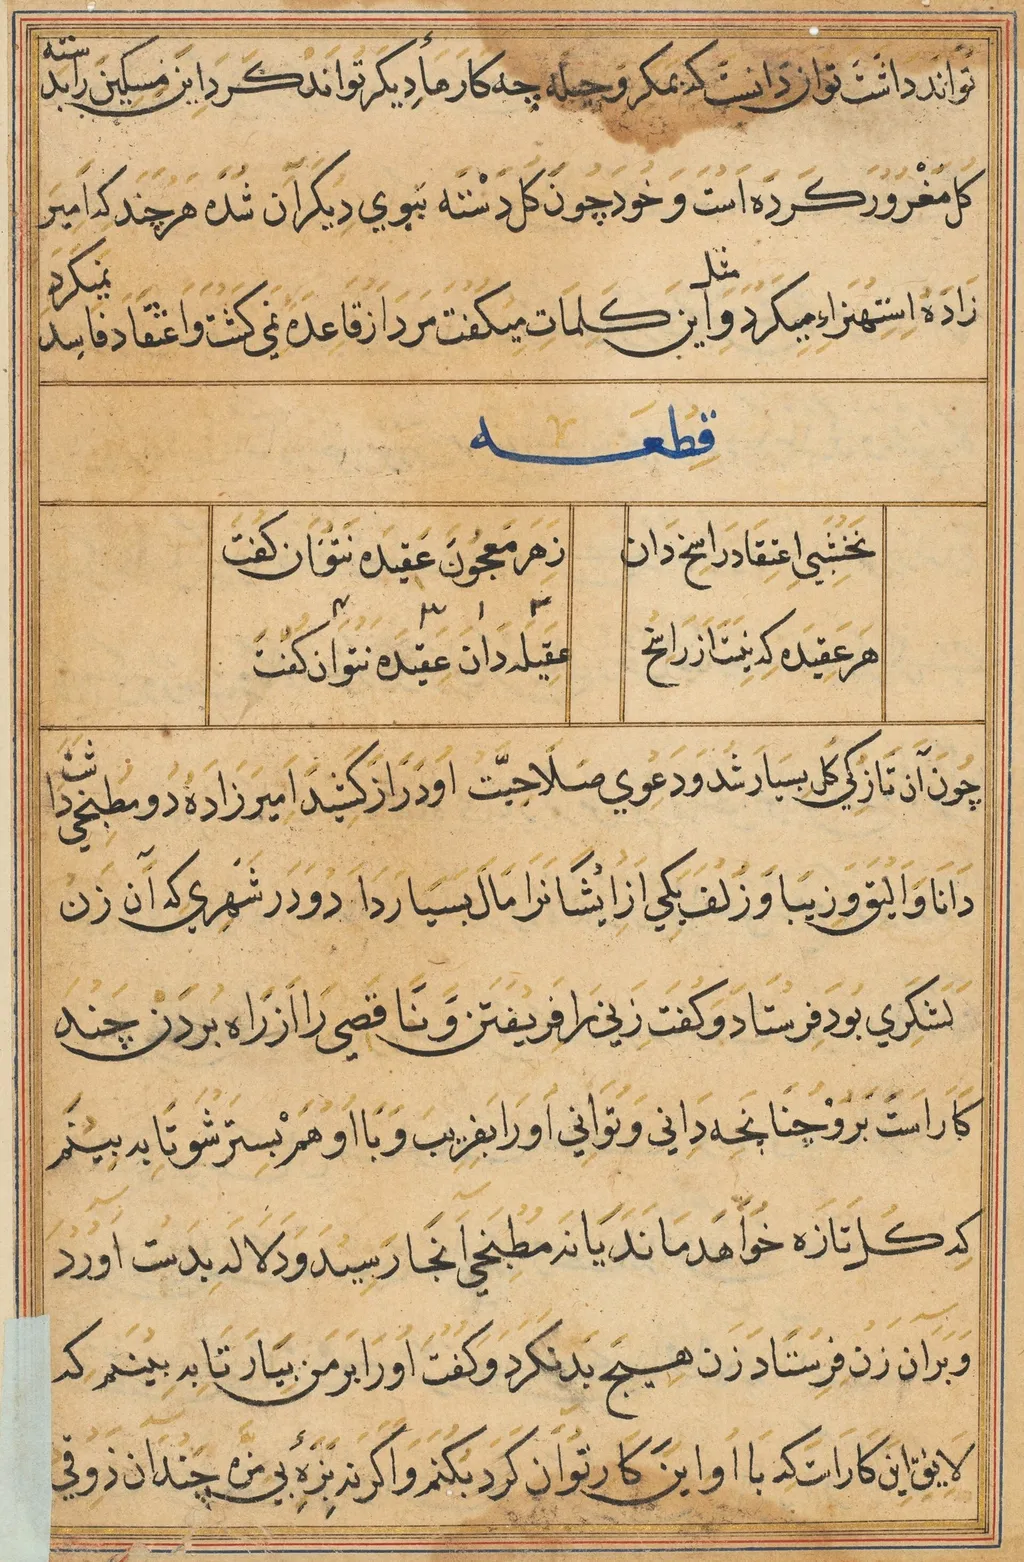 تواند داشت توان دانست که بمکر و حیله چه کارها دیگر تواند کرد این مسکین را بدسته
کل مغرور کرده است و خود چون کل دسته ببوی دیکران شده هر چند که امیر
زاده استهزاء میکرد و مثل این کلمات میکفت مرد از قاعده نمی کشت و اعتقاد فاسد نمیکرد
قطعه
نخشبی اعتقاد راسخ دان
زهر معجون عقیده نتوان کفت
هر عقیده که نیست از راسخ
عقیله دان عقیده نتوان کفت
چون آن تازکی کل بسیار شد و دعوی صلاحیت او دراز کشید امیرزاده دو مطبخی داشت
دانا و الیق و زیبا و زلف یکی از ایشانرا مال بسیار داد و در شهری که آن زن
لشکری بود فرستاد و کفت زنی را فریفتن و ناقصی را از راه بردن چند
کار است برو چنانچه دانی و توانی او را بفریب و با او هم بستر شو تا به بینم
که کل تازه خواهد ماند یا نه مطبخی آنجا رسید و دلاله بدست اورد
و بران زن فرستاد زن هیچ بد نکرد و کفت او را بر من بیار تا به بینم که
لایق این کار است که با او این کار توان کرد بکنم و اکر نه بزهٔ بی مزه چندان ذوقی